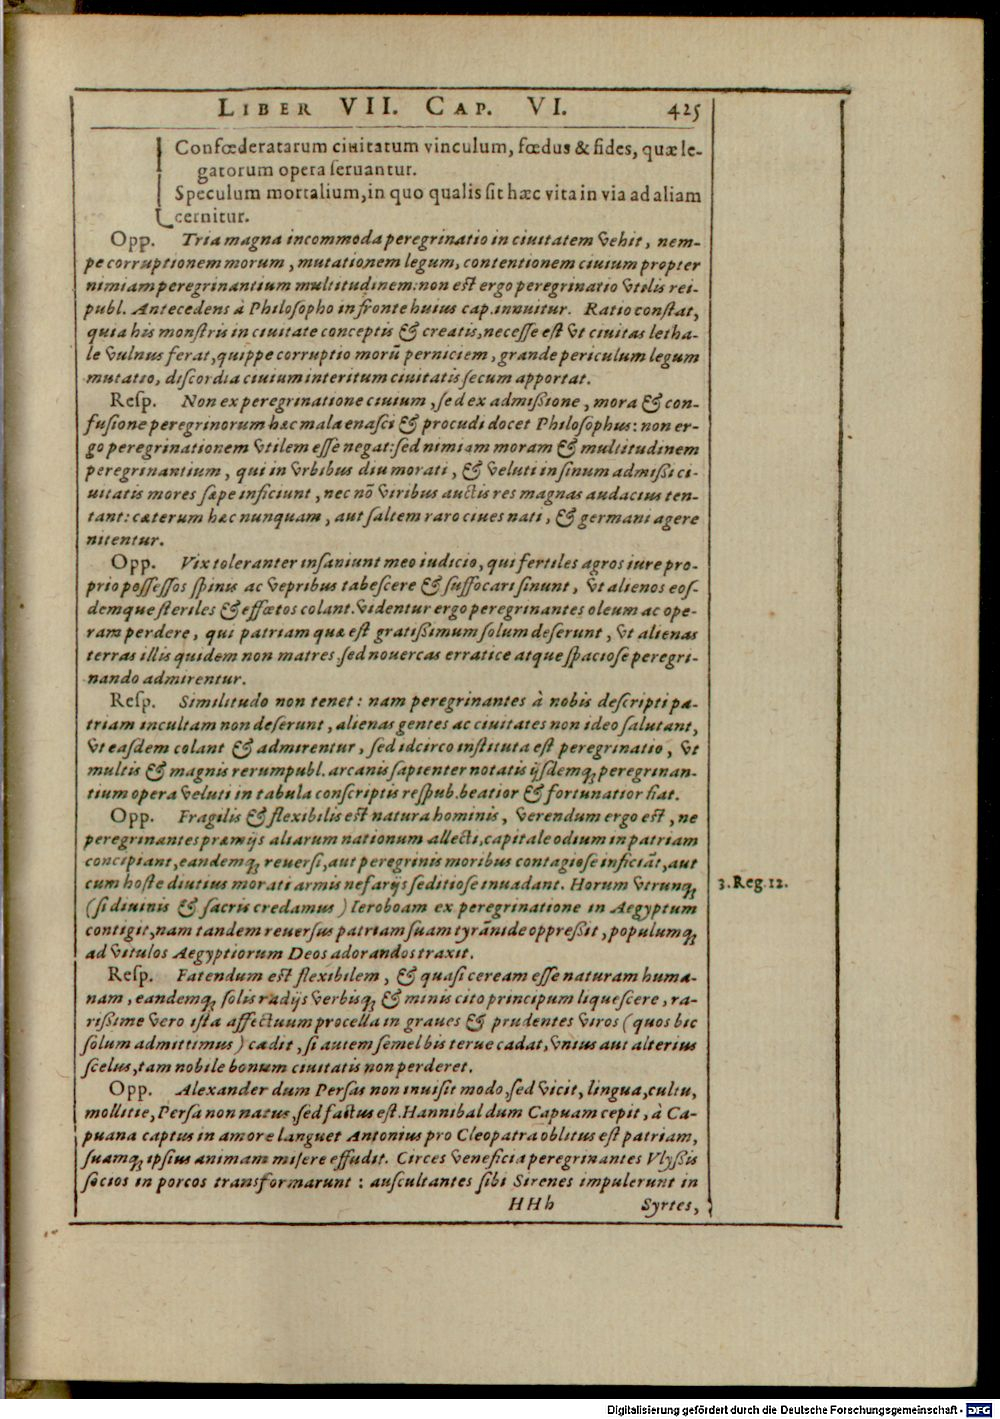 LIBER VII. CAP. VI. 425
Confœderatarum ciuitatum vinculum, fœdus & fides, quæ le-
gatorum opera ſeruantur.
Speculum mortalium, in quo qualis ſit hæc vita in via ad aliam
cernitur.
Opp. Tria magna incommoda peregrinatio in ciuitatem vehit, nem-
pe corruptionem morum, mutationem legum, contentionem ciuium propter
nimiam peregrinantium multitudinem: non eſt ergo peregrinatio vtilis rei-
publ. Antecedens à Philoſopho in fronte huius cap. innuitur. Ratio conſtat,
quia his monſtris in ciuitate conceptis & creatis, neceſſe eſt vt ciuitas letha-
le vulnus ferat, quippe corruptio morũ perniciem, grande periculum legum
mutatio, diſcordia ciuium interitum ciuitatis ſecum apportat.
Reſp. Non ex peregrinatione ciuium, ſed ex admißione, mora & con-
fuſione peregrinorum hæc mala enaſci & procudi docet Philoſophus: non er-
go peregrinationem vtilem eſſe negat: ſed nimiam moram & multitudinem
peregrinantium, qui in vrbibus diu morati, & veluti in ſinum admißi ci-
uitatis mores ſæpe inficiunt, nec nõ viribus auctis res magnas audacius ten-
tant: cæterum hæc nunquam, aut ſaltem raro ciues nati, & germani agere
nitentur.
Opp. Vix toleranter inſaniunt meo iudicio, qui fertiles agros iure pro-
prio poſſeſſos ſpinis ac vepribus tabeſcere & ſuffocari ſinunt, vt alienos eoſ-
demque ſteriles & effœtos colant. videntur ergo peregrinantes oleum ac ope-
ram perdere, qui patriam quæ eſt gratißimum ſolum deſerunt, vt alienas
terras illis quidem non matres, ſed nouercas erratice atque ſpacioſe peregri-
nando admirentur.
Reſp. Similitudo non tenet: nam peregrinantes à nobis deſcripti pa-
triam incultam non deſerunt, alienas gentes ac ciuitates non ideo ſalutant,
vt eaſdem colant & admirentur, ſed idcirco inſtituta eſt peregrinatio, vt
multis & magnis rerumpubl. arcanis ſapienter notatis ijſdemq́; peregrinan-
tium opera veluti in tabula conſcriptis reſpub. beatior & fortunatior fiat.
Opp. Fragilis & flexibilis eſt natura hominis, verendum ergo eſt, ne
peregrinantes præmijs aliarum nationum allecti, capitale odium in patriam
concipiant, eandemq́; reuerſi, aut peregrinis moribus contagioſe inficiãt, aut
cum hoſte diutius morati armis nefarijs ſeditioſe inuadant. Horum vtrunq́;
3. Reg. 12.
(ſi diuinis & ſacris credamus) Ieroboam ex peregrinatione in Aegyptum
contigit, nam tandem reuerſus patriam ſuam tyrãnide oppreßit, populumq́;
ad vitulos Aegyptiorum Deos adorandos traxit.
Reſp. Fatendum eſt flexibilem, & quaſi ceream eſſe naturam huma-
nam, eandemq́; ſolis radijs verbisq́; & minis cito principum liqueſcere, ra-
rißime vero iſta affectuum procella in graues & prudentes viros (quos hic
ſolum admittimus) cadit, ſi autem ſemel bis terue cadat, vnius aut alterius
ſcelus, tam nobile bonum ciuitatis non perderet.
Opp. Alexander dum Perſas non inuiſit modo, ſed vicit, lingua, cultu,
mollitie, Perſa non natus, ſed factus eſt. Hannibal dum Capuam cepit, à Ca-
puana captus in amore languet Antonius pro Cleopatra oblitus eſt patriam,
ſuamq́; ipſius animam miſere effudit. Circes veneficia peregrinantes Vlyßis
ſocios in porcos transformarunt: auſcultantes ſibi Sirenes impulerunt in
HHh Syrtes,
Digitalisierung gefördert durch die Deutsche Forschungsgemeinschaft - DFG